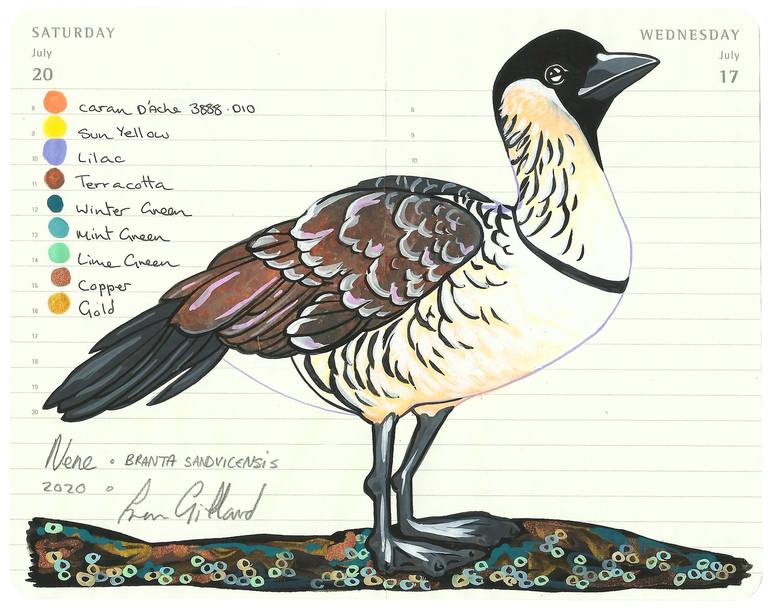 SATURDAY
July
20
WEDNESDAY
July
17
8
9
10
11
12
13
14
15
16
17
18
19
20
8
9
10
Caran D'Ache 3888.010
Sun Yellow
Lilac
Terracotta
Winter Green
Mint Green
Lime Green
Copper
Gold
Nene • BRANTA SANDVICENSIS
2020 •